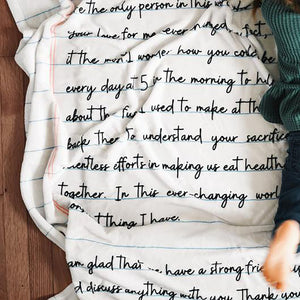 e the only person in this
your love for me ever
it the I wonder how you could be
every day at 5 in the morning to
about the used to make at th
back the To understand your sacrifice
efforts in making us eat health
together. In this ever-changing world
thing I have.
am glad that have a strong
d discuss anything with you. Thank you